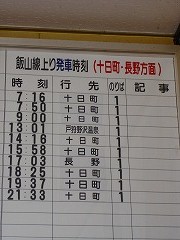 飯山線上り発車時刻(十日町・長野方面)
時刻 行先 のりば 記事
7:16 十日町 1
7:50 十日町 1
9:00 十日町 1
13:01 戸狩野沢温泉 1
14:16 十日町 1
15:58 十日町 1
17:03 長野 1
18:25 十日町 1
19:37 十日町 1
21:33 十日町 1